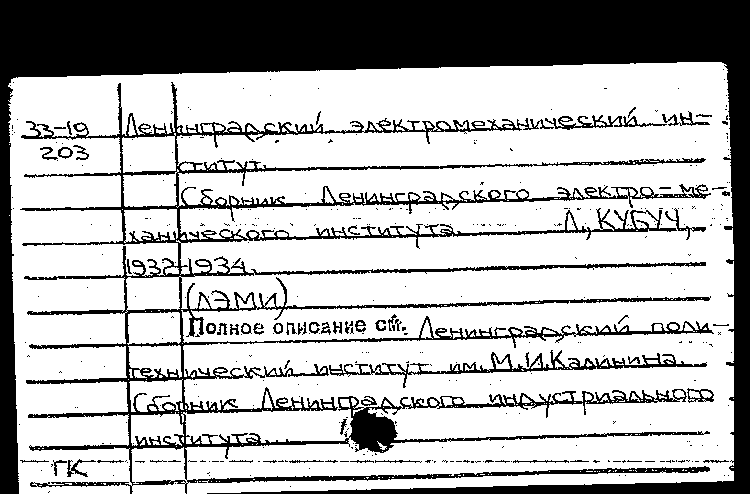 33-19 Ленинградский электромеханический ин-
203
ститут.
Сборник Ленинградского электро-ме-
ханического института. Л., КУБУЧ,
1932-1934.
(ЛЭМИ)
Полное описание см. Ленинградский поли-
технический институт им. М.И.Калинина.
Сборник Ленинградского индустриального
института.
ГК